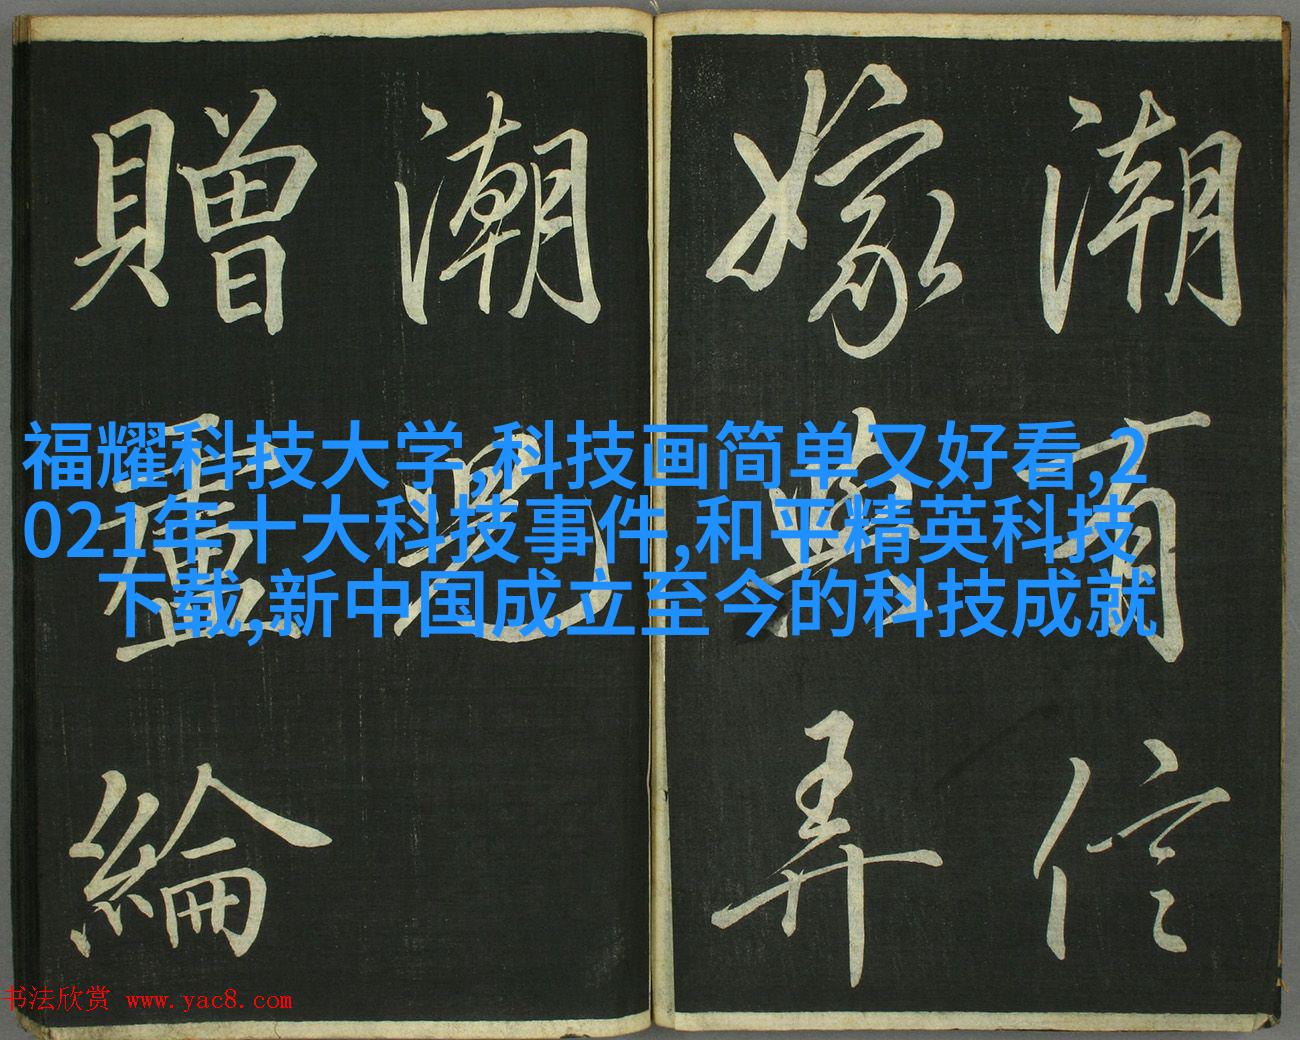 潮有信
嫁與弄
潮兒
贈
綸
福耀科技大学,科技画简单又好看,2
021年十大科技事件,和平精英科技
下载,新中国成立至今的科技成就
书法欣赏 www.yac8.com